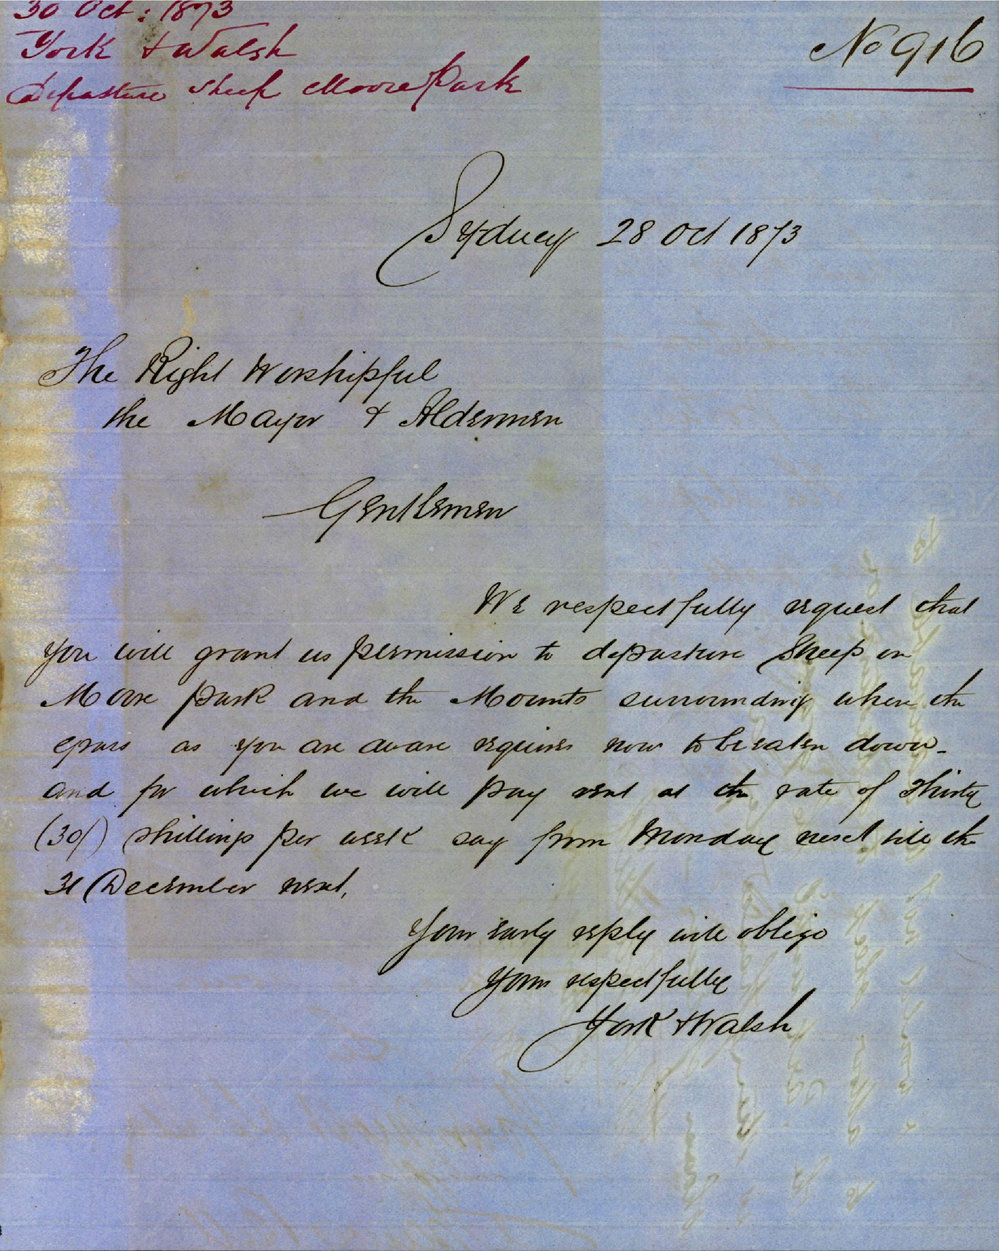 30 Oct: 1873
York & Walsh
Depasture Sheep Moore Park
No 916
Sydney 28 Oct 1873
The Right Worshipful
the Mayor & Aldermen
Gentlemen
We respectfully request that
you will grant us permission to depasture Sheep on
Moore park and the Mounts surrounding where the
grass as you are aware requires now to be eaten down_
and for which we will pay rent at the rate of Thirty
(30/) shillings per week say from Monday next till the
31 December next,
Your early reply will oblige
Yours respectfully
York & Walsh